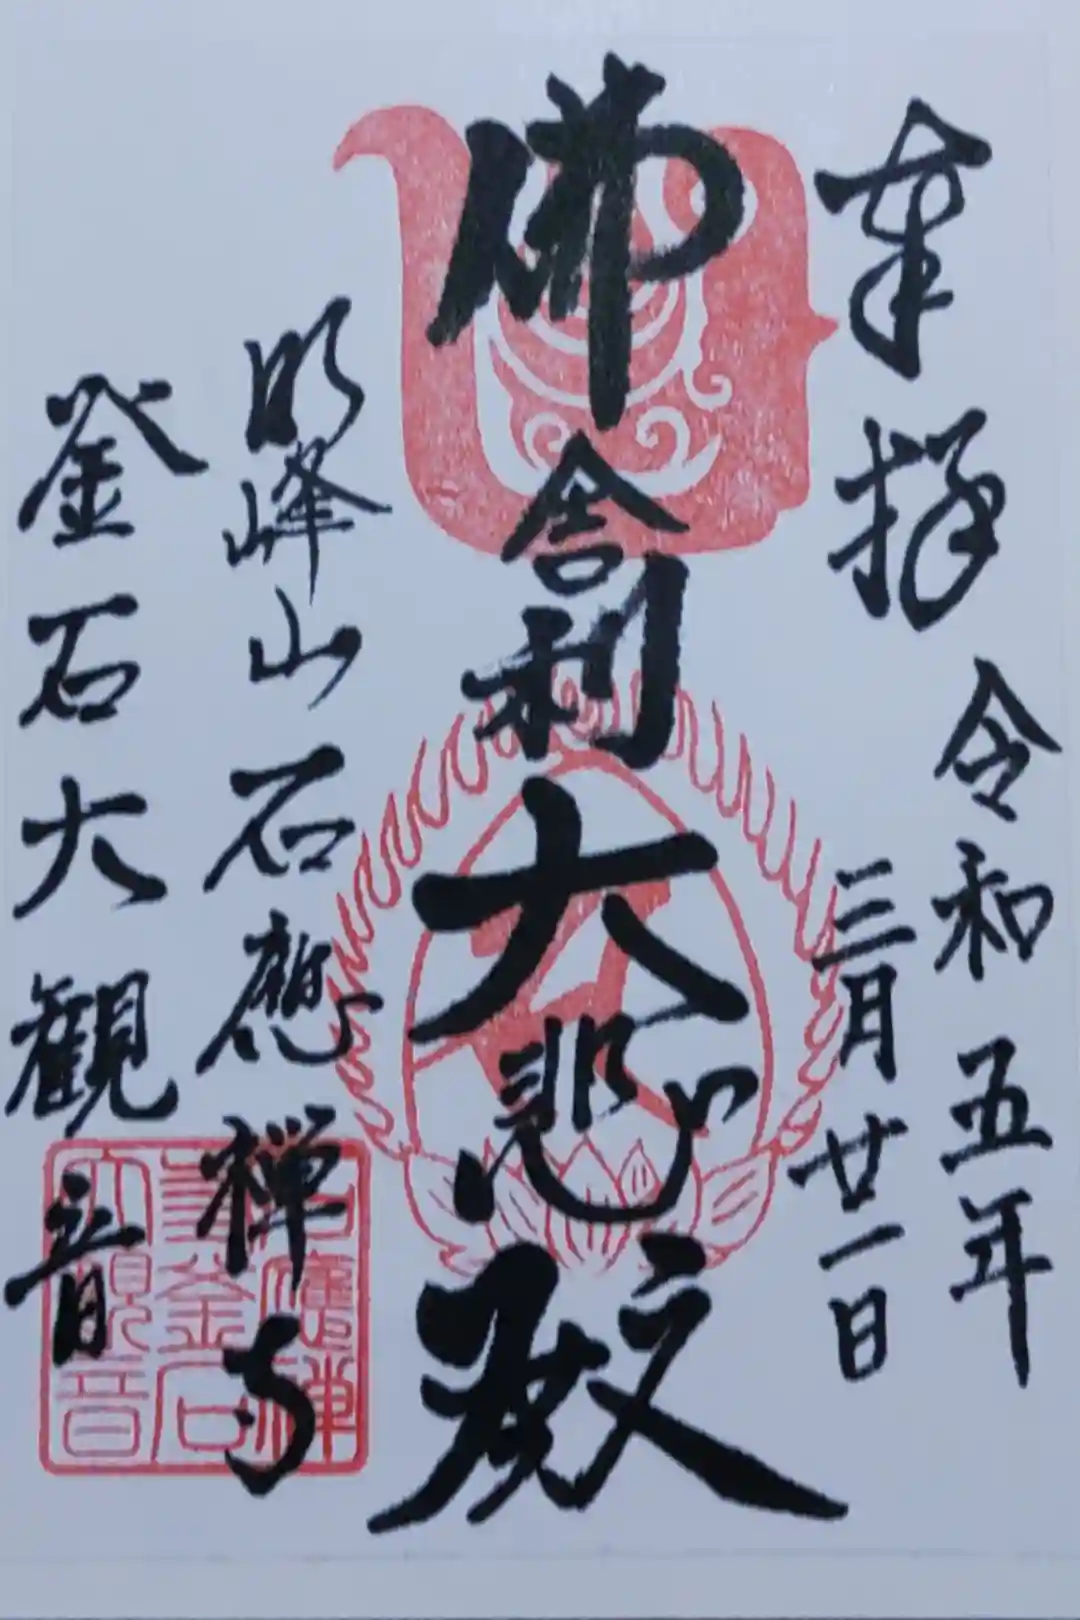 奉拝
令和五年
三月廿一日
佛舎利大悲殿
明峰山石應禅寺
釜石大観音
石應禅
寺釜石
大観音